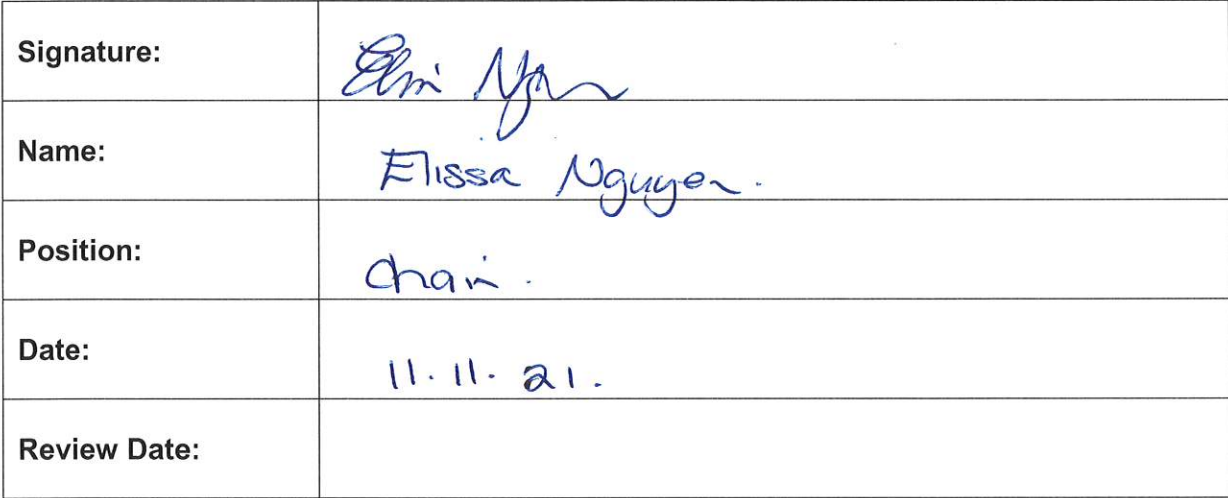 Signature:
Name: Elissa Nguyen.
Position: Chair.
Date: 11.11.21.
Review Date: